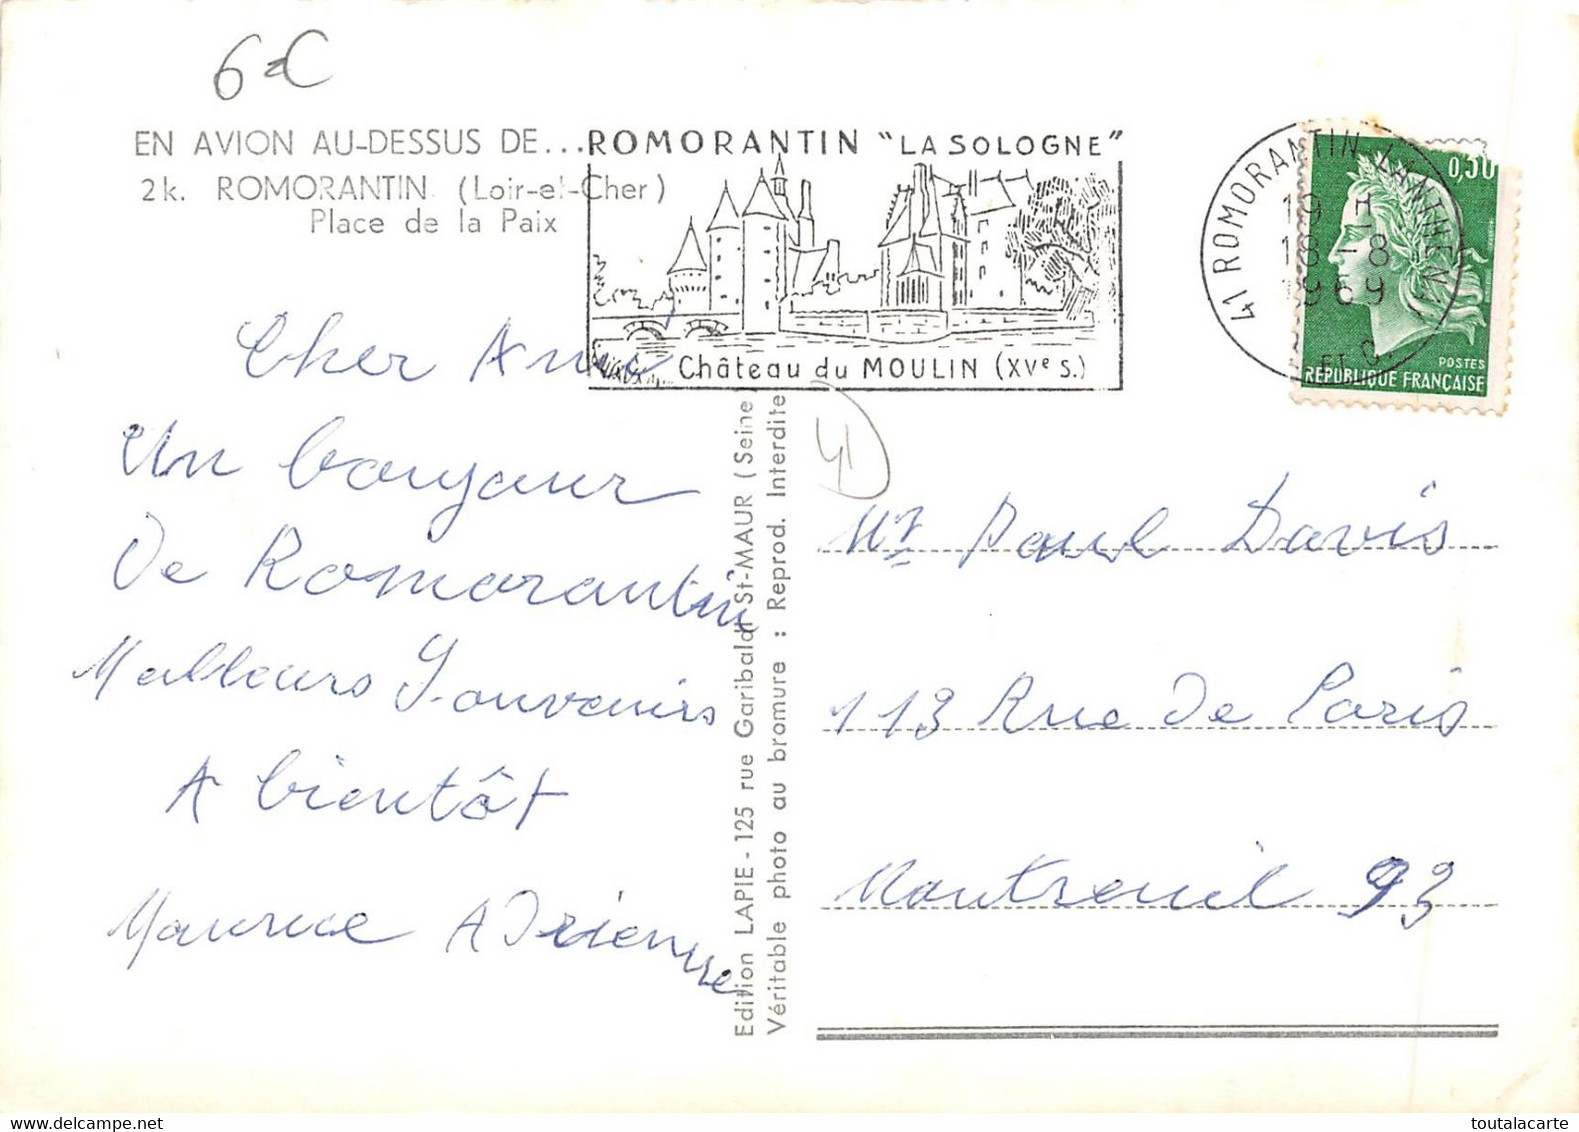 6 €
EN AVION AU-DESSUS DE...
2 k. ROMORANTIN (Loir-et-Cher)
Place de la Paix
ROMORANTIN "LA SOLOGNE"
Château du MOULIN (XVe S.)
41 ROMORANTIN-LANTHENAY
19 H
18-8
1969
L. ET C.
0,30
POSTES
REPUBLIQUE FRANÇAISE
Cher Ami
Un bonjour
De Romorantin
Meilleurs Souvenirs
A bientôt
Maurice Adrienne
Edition LAPIE - 125 rue Garibaldi St-MAUR (Seine
Véritable photo au bromure : Reprod. Interdite
Mr Paul Davis
113 Rue De Paris
Montreuil 93
toutalacarte